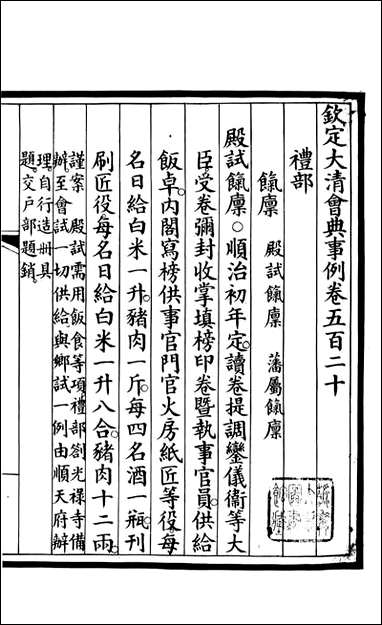 欽定大清會典事例卷五百二十
禮部
餼廩 殿試餼廩 藩屬餼廩
殿試餼廩○順治初年定讀卷提調鑾儀衞等大
臣受卷彌封收掌填榜印卷暨執事官員供給
飯卓內閣寫榜供事官門官火房紙匠等役每
名日給白米一升豬肉一斤每四名酒一瓶刊
刷匠役每名日給白米一升八合豬肉十二兩
謹案 殿試需用飯食等項禮部劄光祿寺備
辦至會試一切供給與鄉試一例由順天府辦
理自行造冊具
題交戶部題銷